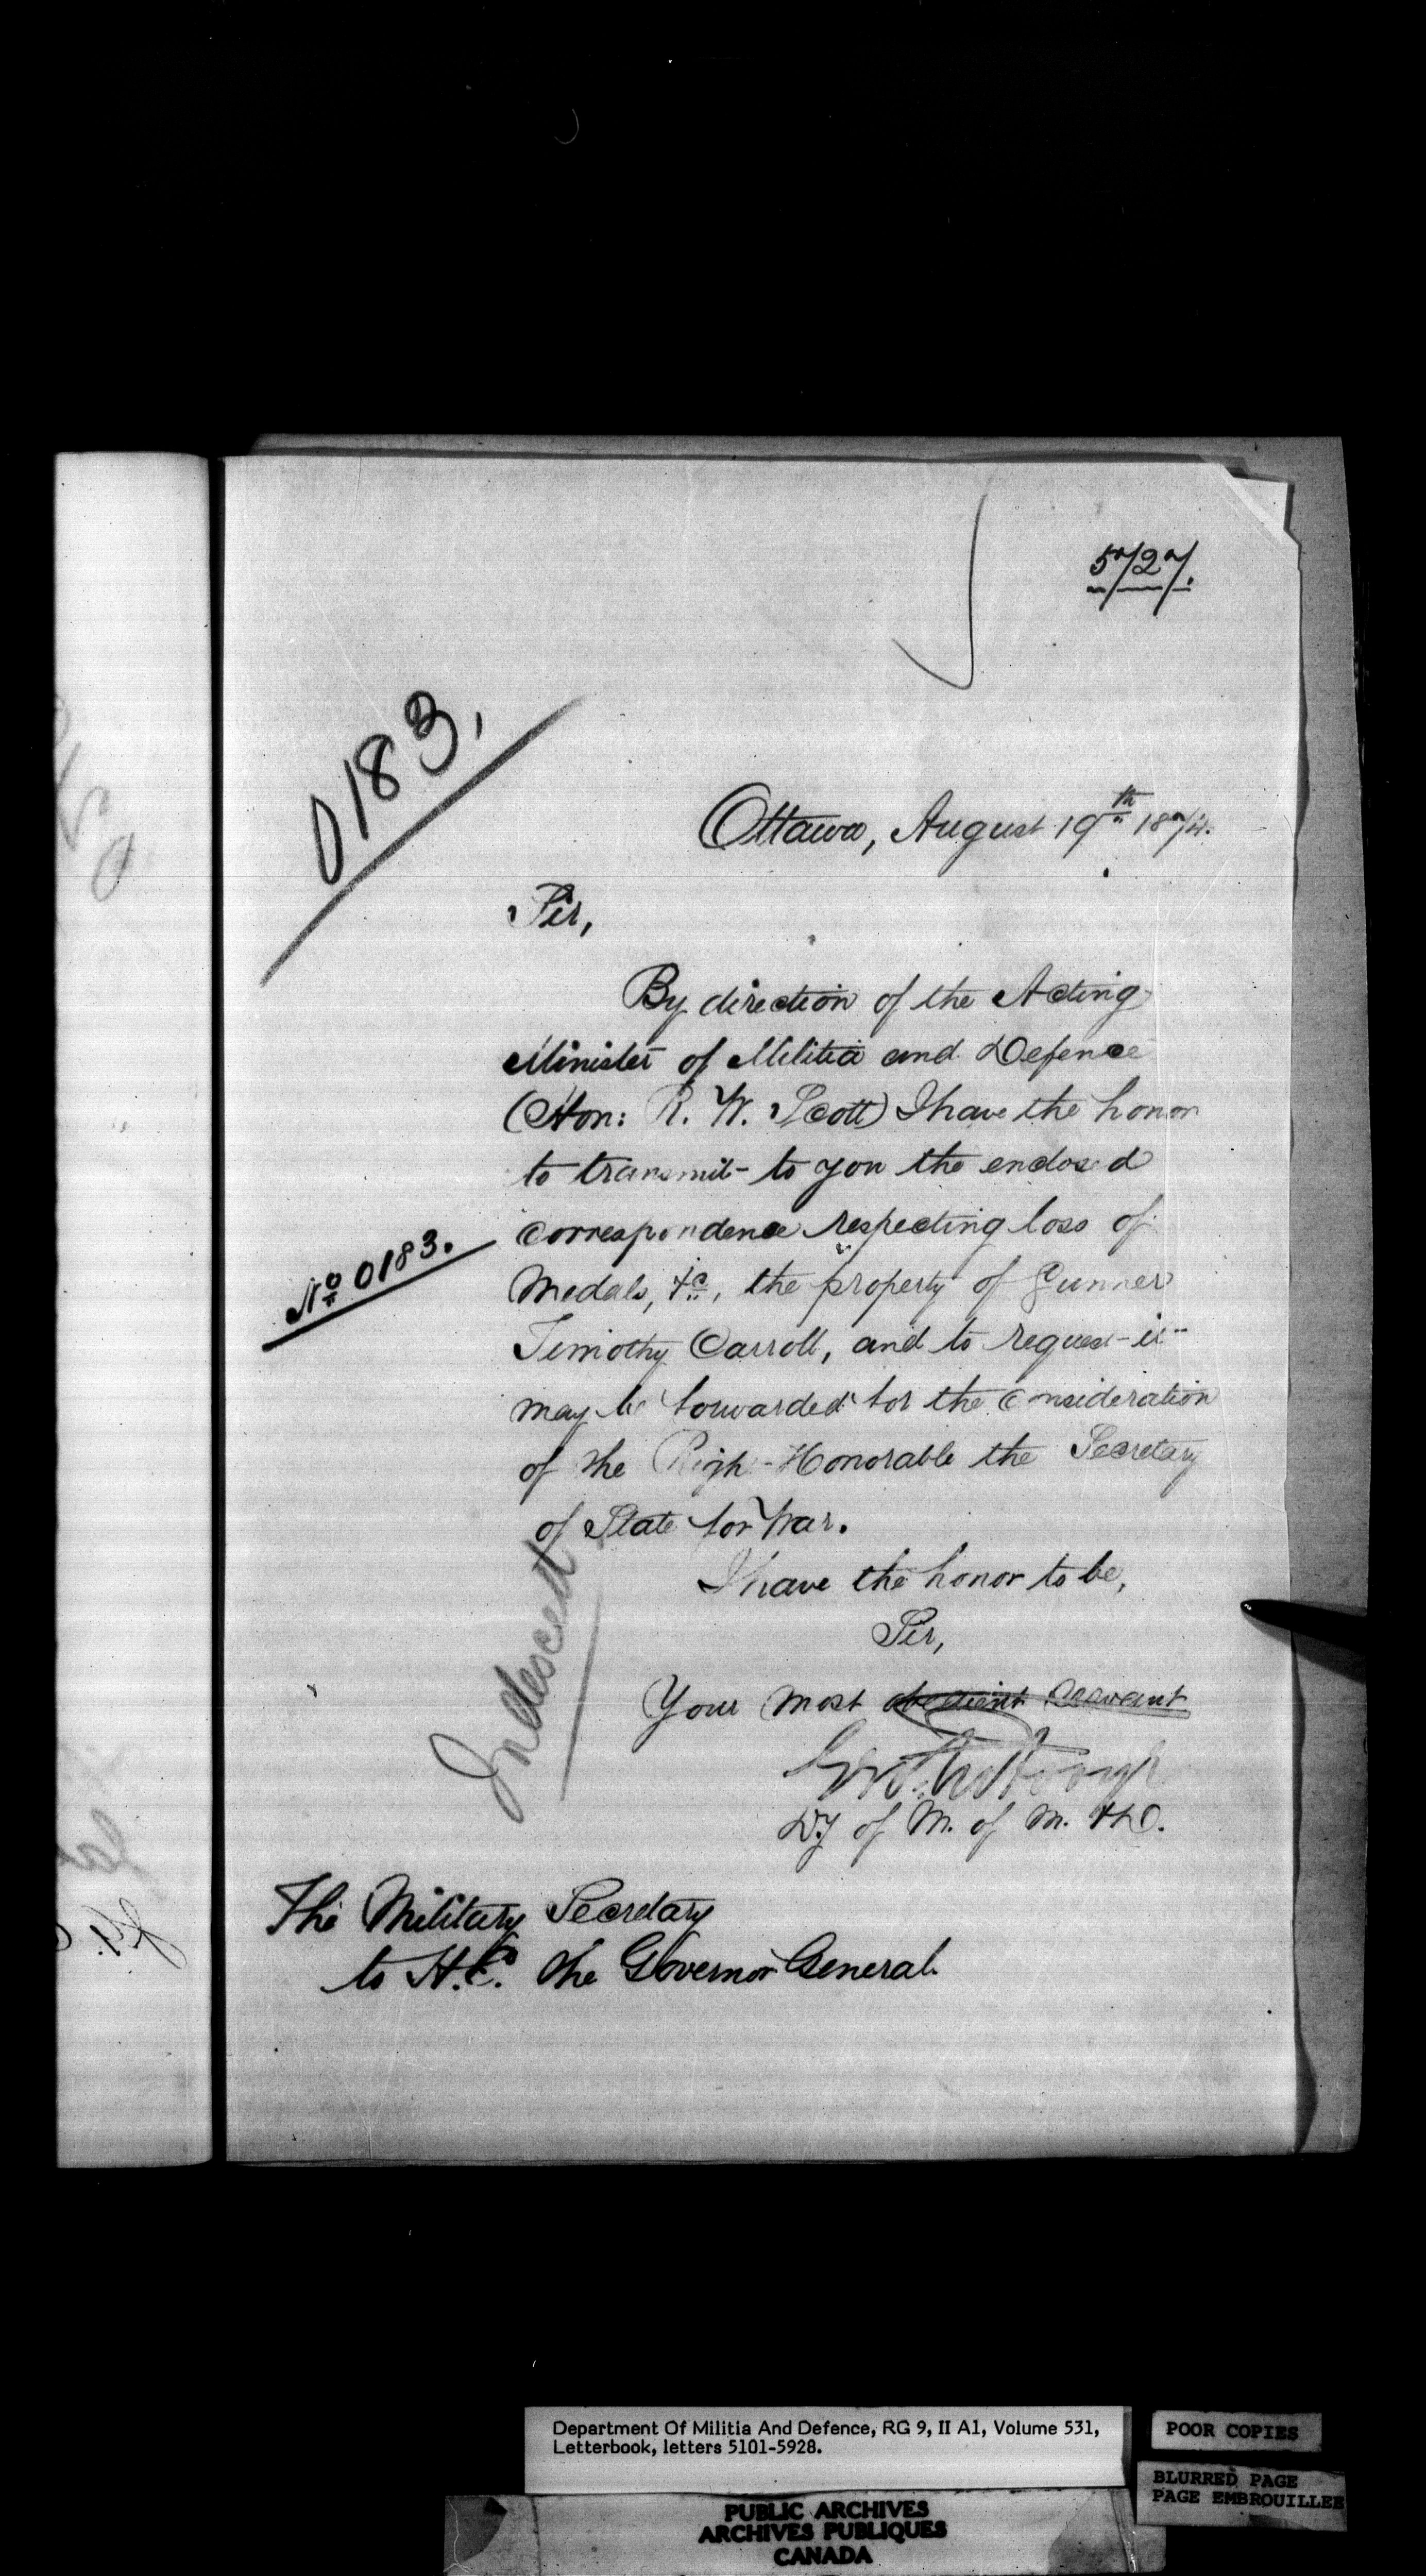 5727.
0183.
Ottawa, August 19th 1874.
Sir,
By direction of the Acting
Minister of Militia and Defence
(Hon: R. W. Scott) I have the honor
to transmit to you the enclosed
correspondence respecting loss of
No 0183.
Medals, &c., the property of Gunner
Timothy Carroll, and to request it
may be forwarded for the consideration
of the Right Honorable the Secretary
of State for War.
I have the honor to be,
Sir,
Your most obedient servant
Dy of M. of M. & D.
The Military Secretary
to H.E. the Governor General.
Department Of Militia And Defence, RG 9, II A1, Volume 531,
Letterbook, letters 5101-5928.
POOR COPIES
BLURRED PAGE
PAGE EMBROUILLEE
PUBLIC ARCHIVES
ARCHIVES PUBLIQUES
CANADA